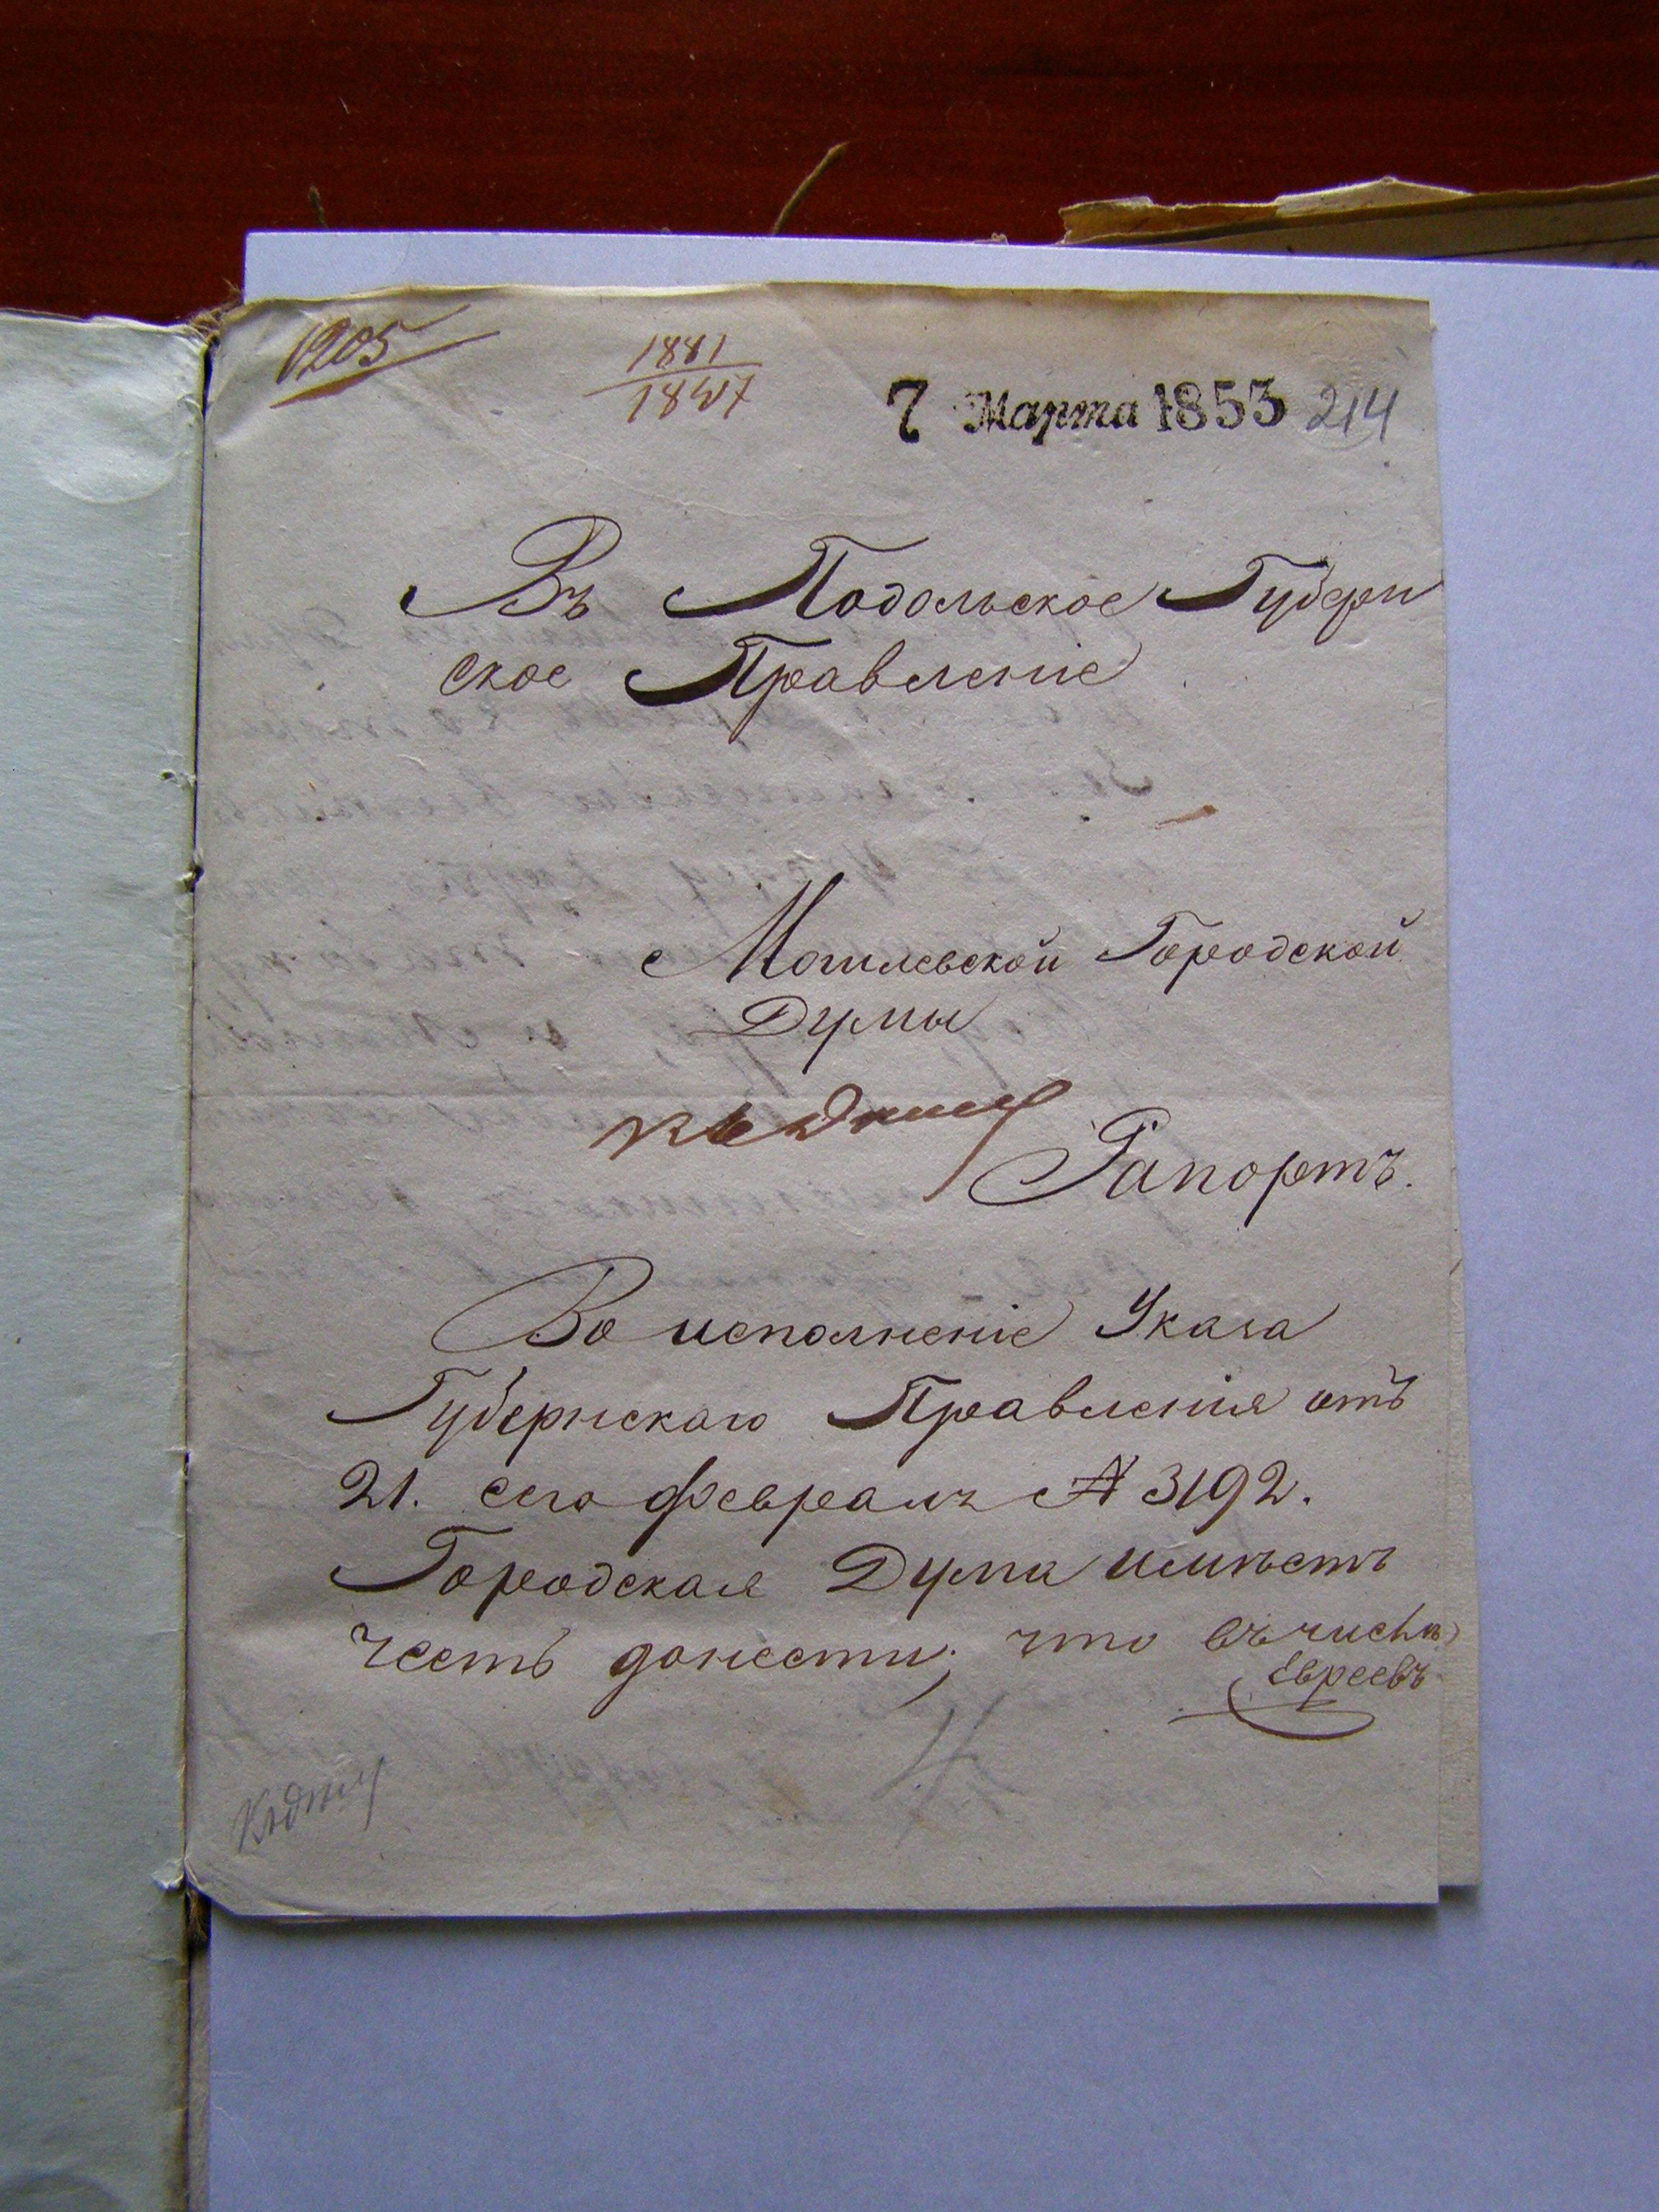 1205
1881
7 Марта 1853 214
Въ Подольское Губерн
ское Правленіе
Могилевской Городской
Думы
Къ дѣлу
Рапортъ.
Во исполненіе Указа
Губернскаго Правленія отъ
21. сего февраля № 3192.
Городская Дума имѣетъ
честь донести; что въ числѣ
Евреевъ
Къ дѣлу